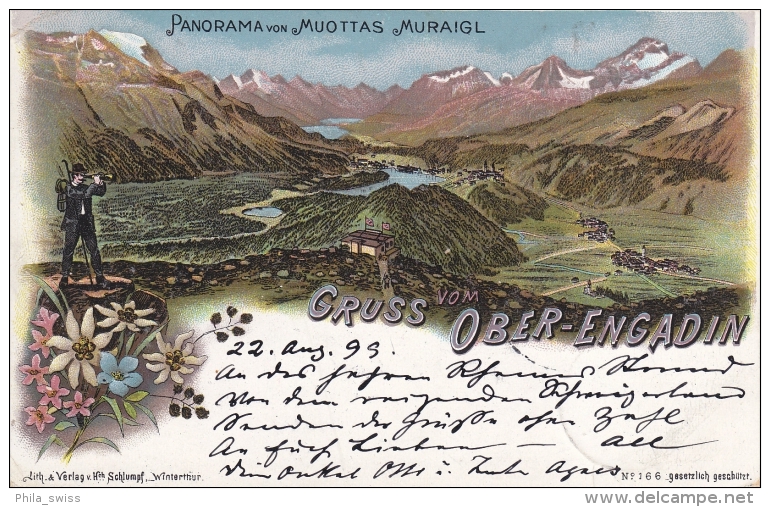 PANORAMA VON MUOTTAS MURAIGL
GRUSS VOM
OBER-ENGADIN
22. Aug. 99.
An des Rheines Strand
Von dem reizenden Schweizerland
Senden der Grüße ohne Zahl
An Euch Lieben – all
dein Onkel Otto u. Tante Agnes
Lith. & Verlag v. Hch Schlumpf, Winterthur.
No 166 gesetzlich geschützt.
Phila_swiss
delcampe.net